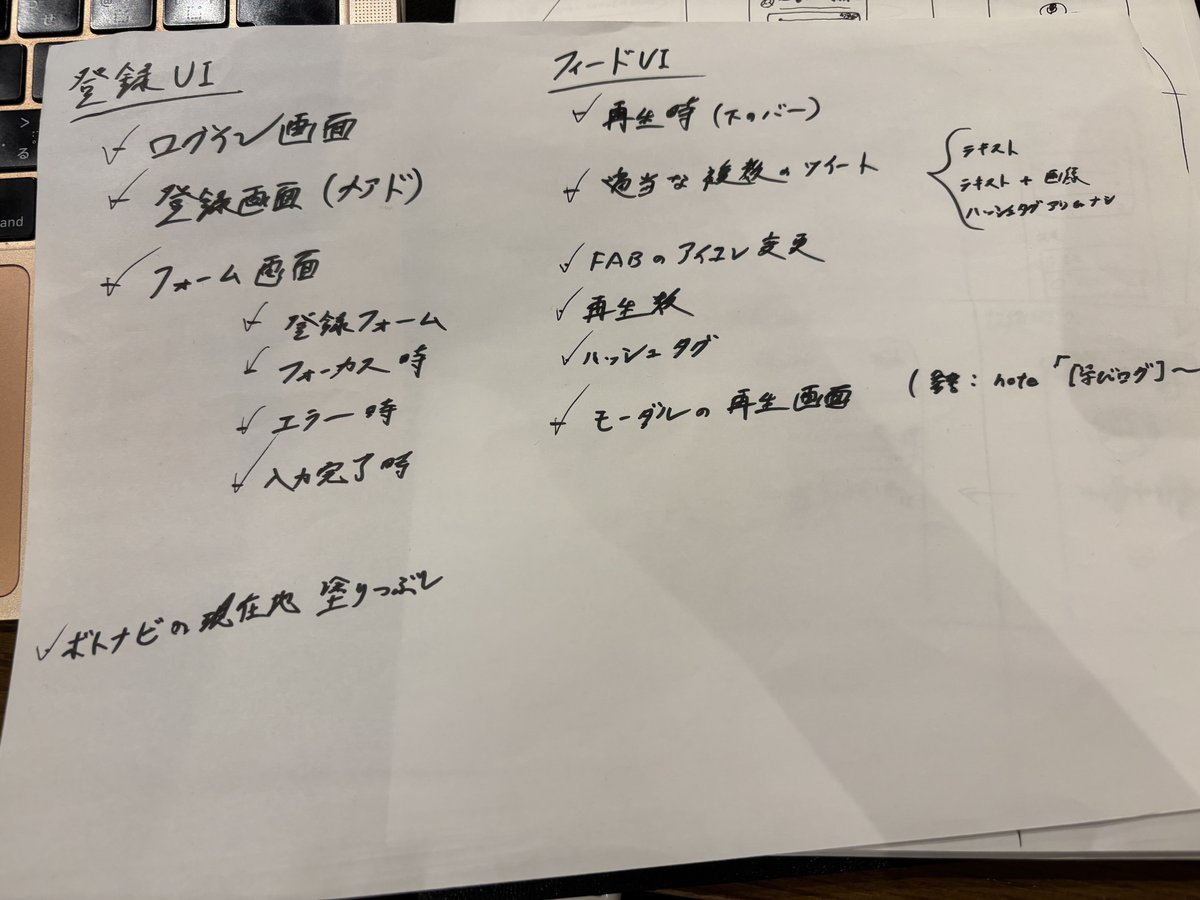 登録UI
ログイン画面
登録画面(メアド)
フォーム画面
登録フォーム
フォーカス時
エラー時
入力完了時
ボトナビの現在地 塗りつぶし
フィードUI
再生時(下のバー)
適当な複数のツイート
テキスト
テキスト + 画像
ハッシュタグアリorナシ
FABのアイコン変更
再生数
ハッシュタグ
モーダルの再生画面
note「[学びログ]〜
る
and